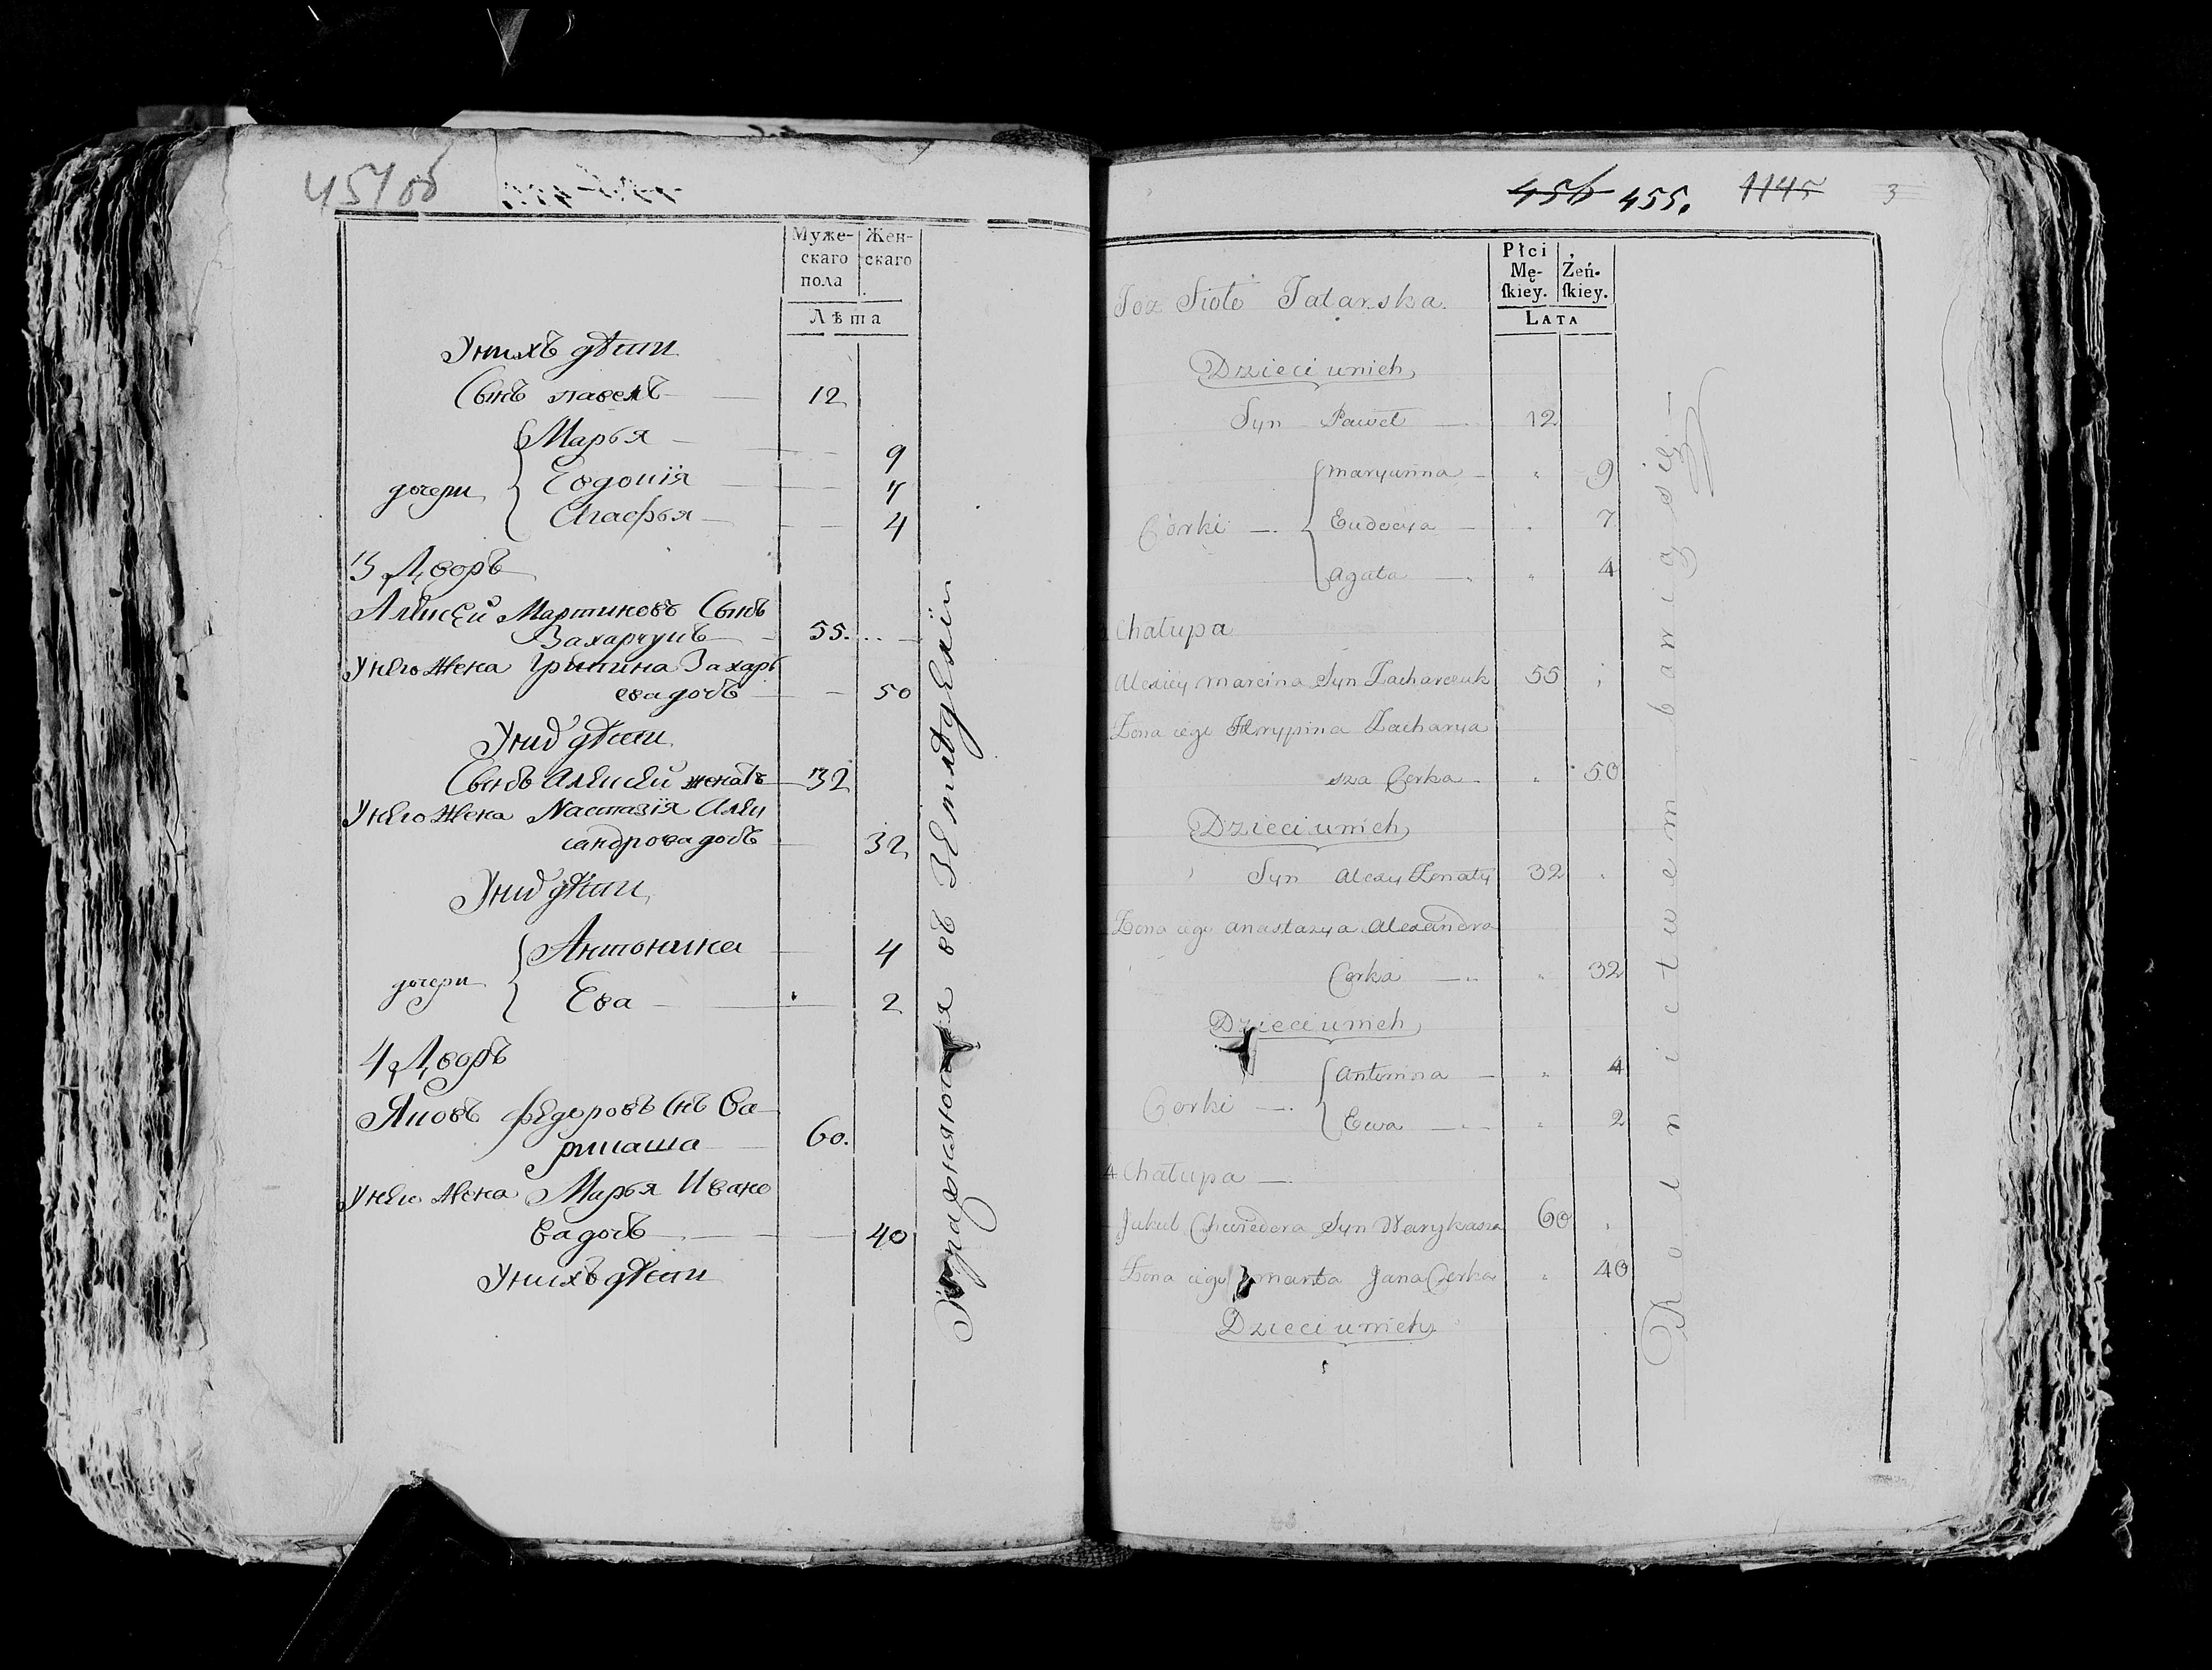 454 об
Муже-
скаго
пола
Жен-
скаго
Лѣта
У нихъ дѣти
Сынъ павелъ 12
дочери
Марья 9
Евдокія 7
Агафья 4
3 Дворъ
Алексей Мартиновъ Сынъ
Захарчукъ 55.
У него Жена Грипина Захарь
ева дочь 50
У них дѣти
Сынъ Алексей женатъ 32
У него Жена Настазія Алек
сандрова дочь 32
У них дѣти
дочери
Антонина 4
Ева 2
4 Дворъ
Яковъ Федоровъ Снъ Ва
рикаша 60.
У него Жена Марья Ивано
ва дочь 40
У нихъ дѣти
Упражняются въ Земледелїи
456 455. 1145 3
Płci
Mę-
ſkiey.
Żeń-
ſkiey.
LATA
Toż Sioło Tatarska
Dzieci u nich
Syn Paweł 12
Corki
Maryanna 9
Eudocya 7
Agata 4
Chałupa
Alexiey Marcina Syn Zacharczuk 55
Żona iego Hrypina Zacharya
sza Corka 50
Dzieci u nich
Syn Alexy Żonaty 32
Żona iego Anastazya Alexandra
Corka 32
Dzieci u nich
Corki
Antonina 4
Ewa 2
4 Chałupa
Jakub Chwedora Syn Warykasza 60
Żona iego Marta Jana Corka 40
Dzieci u nich
Rolnictwem bawią się